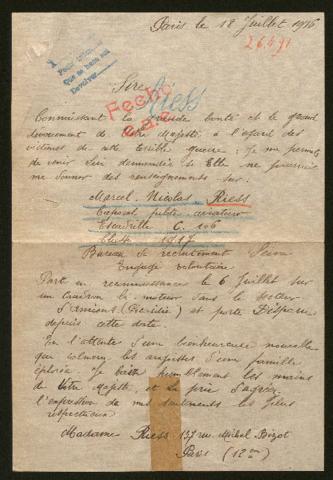 Paris le 18 Juillet 1916
26.491
Sire
Riess
Fecho
Connaissant la grande bonté et le grand
dévouement de Votre Majesté à l'égard des
victimes de cette terrible guerre; Je me permets
de venir lui demander si Elle ne pourrait
me donner des renseignements sur:
Marcel Nicolas Riess
Caporal pilote aviateur
Escadrille C. 106
Classe 1917
Bureau de recrutement Seine
Engagé volontaire
Parti en reconnaissance le 6 Juillet sur
un Caudron bi-moteur dans le secteur
d'Amiens (Picardie) et porté Disparu
depuis cette date.
En l'attente d'une bienheureuse nouvelle
que calmera les angoisses d'une famille
éplorée Je baise humblement les mains
de Votre Majesté, et la prie d'agréer
l'expression de mes sentiments les plus
respectueux
Madame Riess 137 rue Michel Bizot
Paris (12ème)